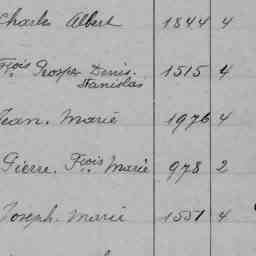 Charles Albert 1844 4
Fçois Prosper Denis. 1515 4
Stanislas
Jean. Marie 1976 4
Pierre. Fçois Marie 978 2
Joseph. Marie 1551 4